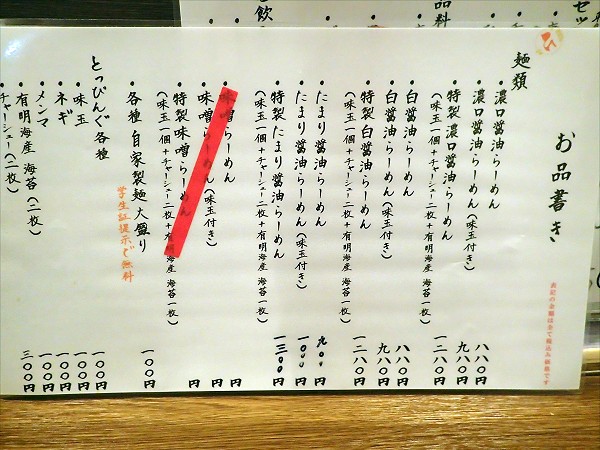 飲
品料
セッ
お品書き
表記の金額は全て税込み価格です
麺類
・濃口醤油らーめん 八八〇円
・濃口醤油らーめん(味玉付き) 九八〇円
・特製濃口醤油らーめん 一二八〇円
(味玉一個+チャーシュー二枚+有明海産 海苔一枚)
・白醤油らーめん 八八〇円
・白醤油らーめん(味玉付き) 九八〇円
・特製白醤油らーめん 一二八〇円
(味玉一個+チャーシュー二枚+有明海産 海苔一枚)
・たまり醤油らーめん 九〇〇円
・たまり醤油らーめん(味玉付き) 一〇〇〇円
・特製たまり醤油らーめん 一三〇〇円
(味玉一個+チャーシュー二枚+有明海産 海苔一枚)
・味噌らーめん 円
・味噌らーめん(味玉付き) 円
・特製味噌らーめん 円
(味玉一個+チャーシュー二枚+有明海産 海苔一枚)
・各種 自家製麺大盛り 一〇〇円
学生証提示で無料
とっぴんぐ各種
・味玉 一〇〇円
・ネギ 一〇〇円
・メンマ 一〇〇円
・有明海産 海苔(二枚) 一〇〇円
・チャーシュー(二枚) 三〇〇円